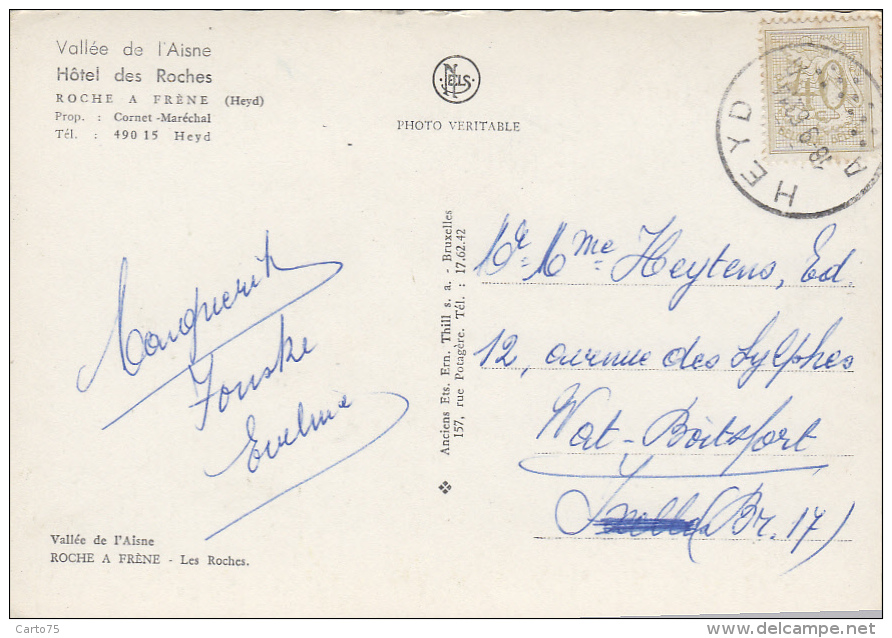 Vallée de l'Aisne
Hôtel des Roches
ROCHE A FRÊNE (Heyd)
Prop. : Cornet-Maréchal
Tél. : 490 15 Heyd
NELS
PHOTO VERITABLE
HEYD
A
40
Marguerite
Fonske
Eveline
Anciens Ets. Ern. Thill s. a. - Bruxelles
157, rue Potagère. Tél. : 17.62.42
Mr Mme Heytens, Ed.
12, avenue des Sylphes
Wat-Boitsfort
(Br. 17)
Vallée de l'Aisne
ROCHE A FRÊNE - Les Roches.
Carto75
www.delcampe.net